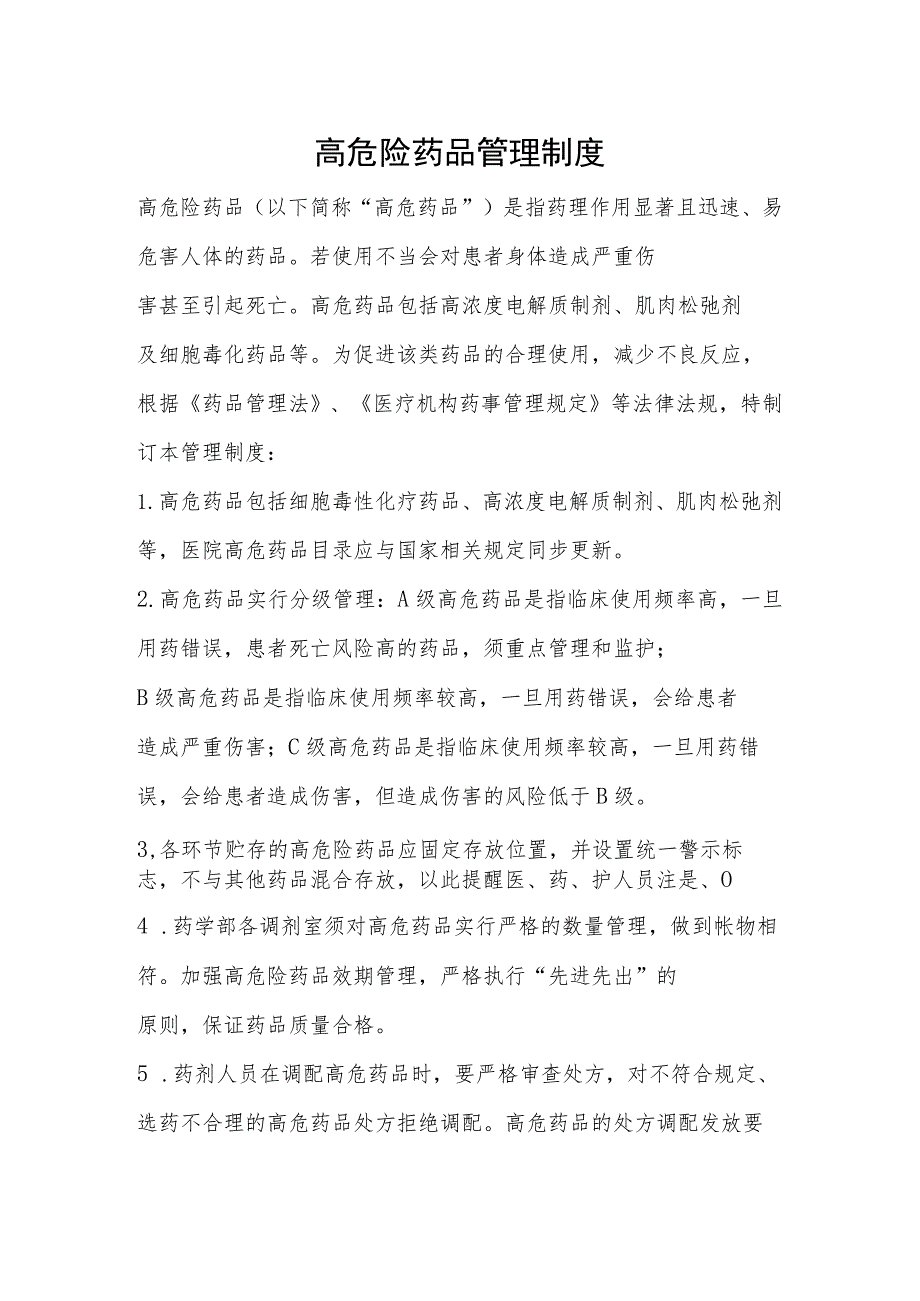 高危险药品管理制度
高危险药品（以下简称“高危药品”）是指药理作用显著且迅速、易
危害人体的药品。若使用不当会对患者身体造成严重伤
害甚至引起死亡。高危药品包括高浓度电解质制剂、肌肉松弛剂
及细胞毒化药品等。为促进该类药品的合理使用，减少不良反应，
根据《药品管理法》、《医疗机构药事管理规定》等法律法规，特制
订本管理制度：
1.高危药品包括细胞毒性化疗药品、高浓度电解质制剂、肌肉松弛剂
等，医院高危药品目录应与国家相关规定同步更新。
2.高危药品实行分级管理：A级高危药品是指临床使用频率高，一旦
用药错误，患者死亡风险高的药品，须重点管理和监护；
B级高危药品是指临床使用频率较高，一旦用药错误，会给患者
造成严重伤害；C级高危药品是指临床使用频率较高，一旦用药错
误，会给患者造成伤害，但造成伤害的风险低于B级。
3,各环节贮存的高危险药品应固定存放位置，并设置统一警示标
志，不与其他药品混合存放，以此提醒医、药、护人员注是、O
4 .药学部各调剂室须对高危药品实行严格的数量管理，做到帐物相
符。加强高危险药品效期管理，严格执行“先进先出”的
原则，保证药品质量合格。
5 .药剂人员在调配高危药品时，要严格审查处方，对不符合规定、
选药不合理的高危药品处方拒绝调配。高危药品的处方调配发放要